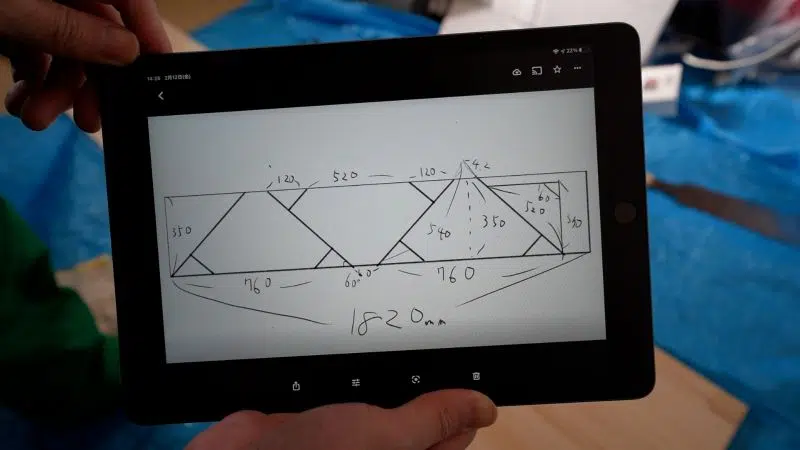 14:26 2月12日(金)
22%
120
520
120
4.2
350
60
520
540
350
760
60
60
760
1820mm